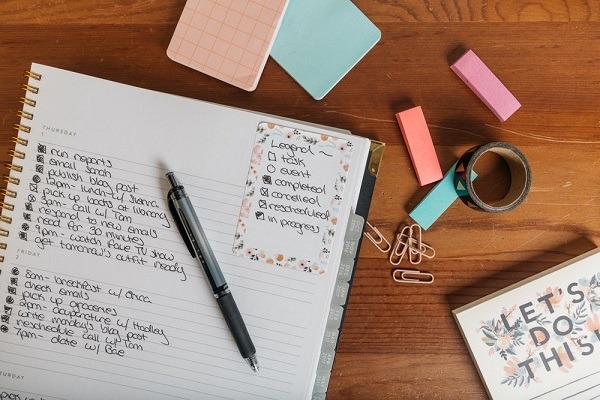 THURSDAY
1
run reports
email Sarah
publish blog post
12pm- lunch w/
pick up books at library
3pm- call w/ Tam
respond to new emails
read for 30 minutes
9pm - watch fave TV show
get tomorrow's outfit ready
FRIDAY
2
8am- breakfast w/ Erica
check emails
pick up groceries
2pm- acupuncture w/ Hadley
write monday's blog post
reschedule call w/ Tam
7pm- date w/ Bae
Legend ~
task
event
completed
cancelled
rescheduled
in progress
LET'S
DO
THIS!